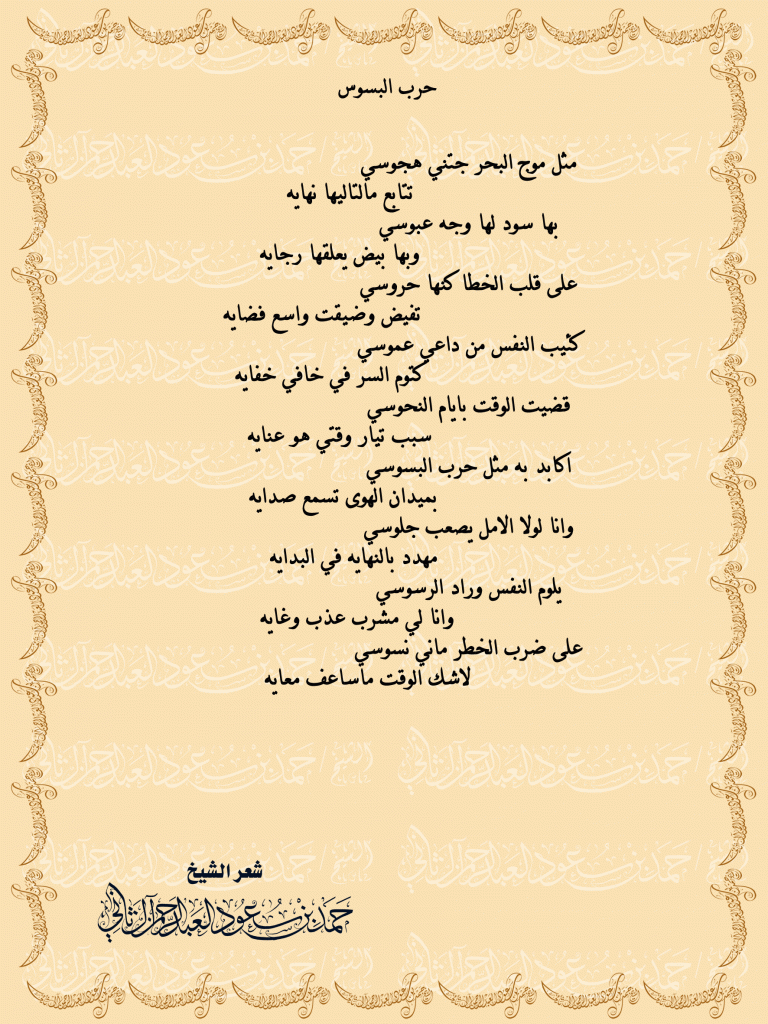 حرب البسوس
مثل موج البحر جتني هجوسي
تتابع مالتاليها نهايه
بها سود لها وجه عبوسي
وبها بيض يعلقها رجايه
على قلب الخطا كنها حروسي
تفيض وضيقت واسع فضايه
كئيب النفس من داعي عموسي
كتوم السر في خافي خفايه
قضيت الوقت بايام النحوسي
سبب تيار وقتي هو عنايه
اكابد به مثل حرب البسوسي
بميدان الهوى تسمع صدايه
وانا لولا الامل يصعب جلوسي
مهدد بالنهايه في البدايه
يلوم النفس وراد الرسوسي
وانا لي مشرب عذب وغايه
على ضرب الخطر ماني نسوسي
لاشك الوقت ماساعف معايه
شعر الشيخ
حمد بن سعود العبدالرحمن آل ثاني